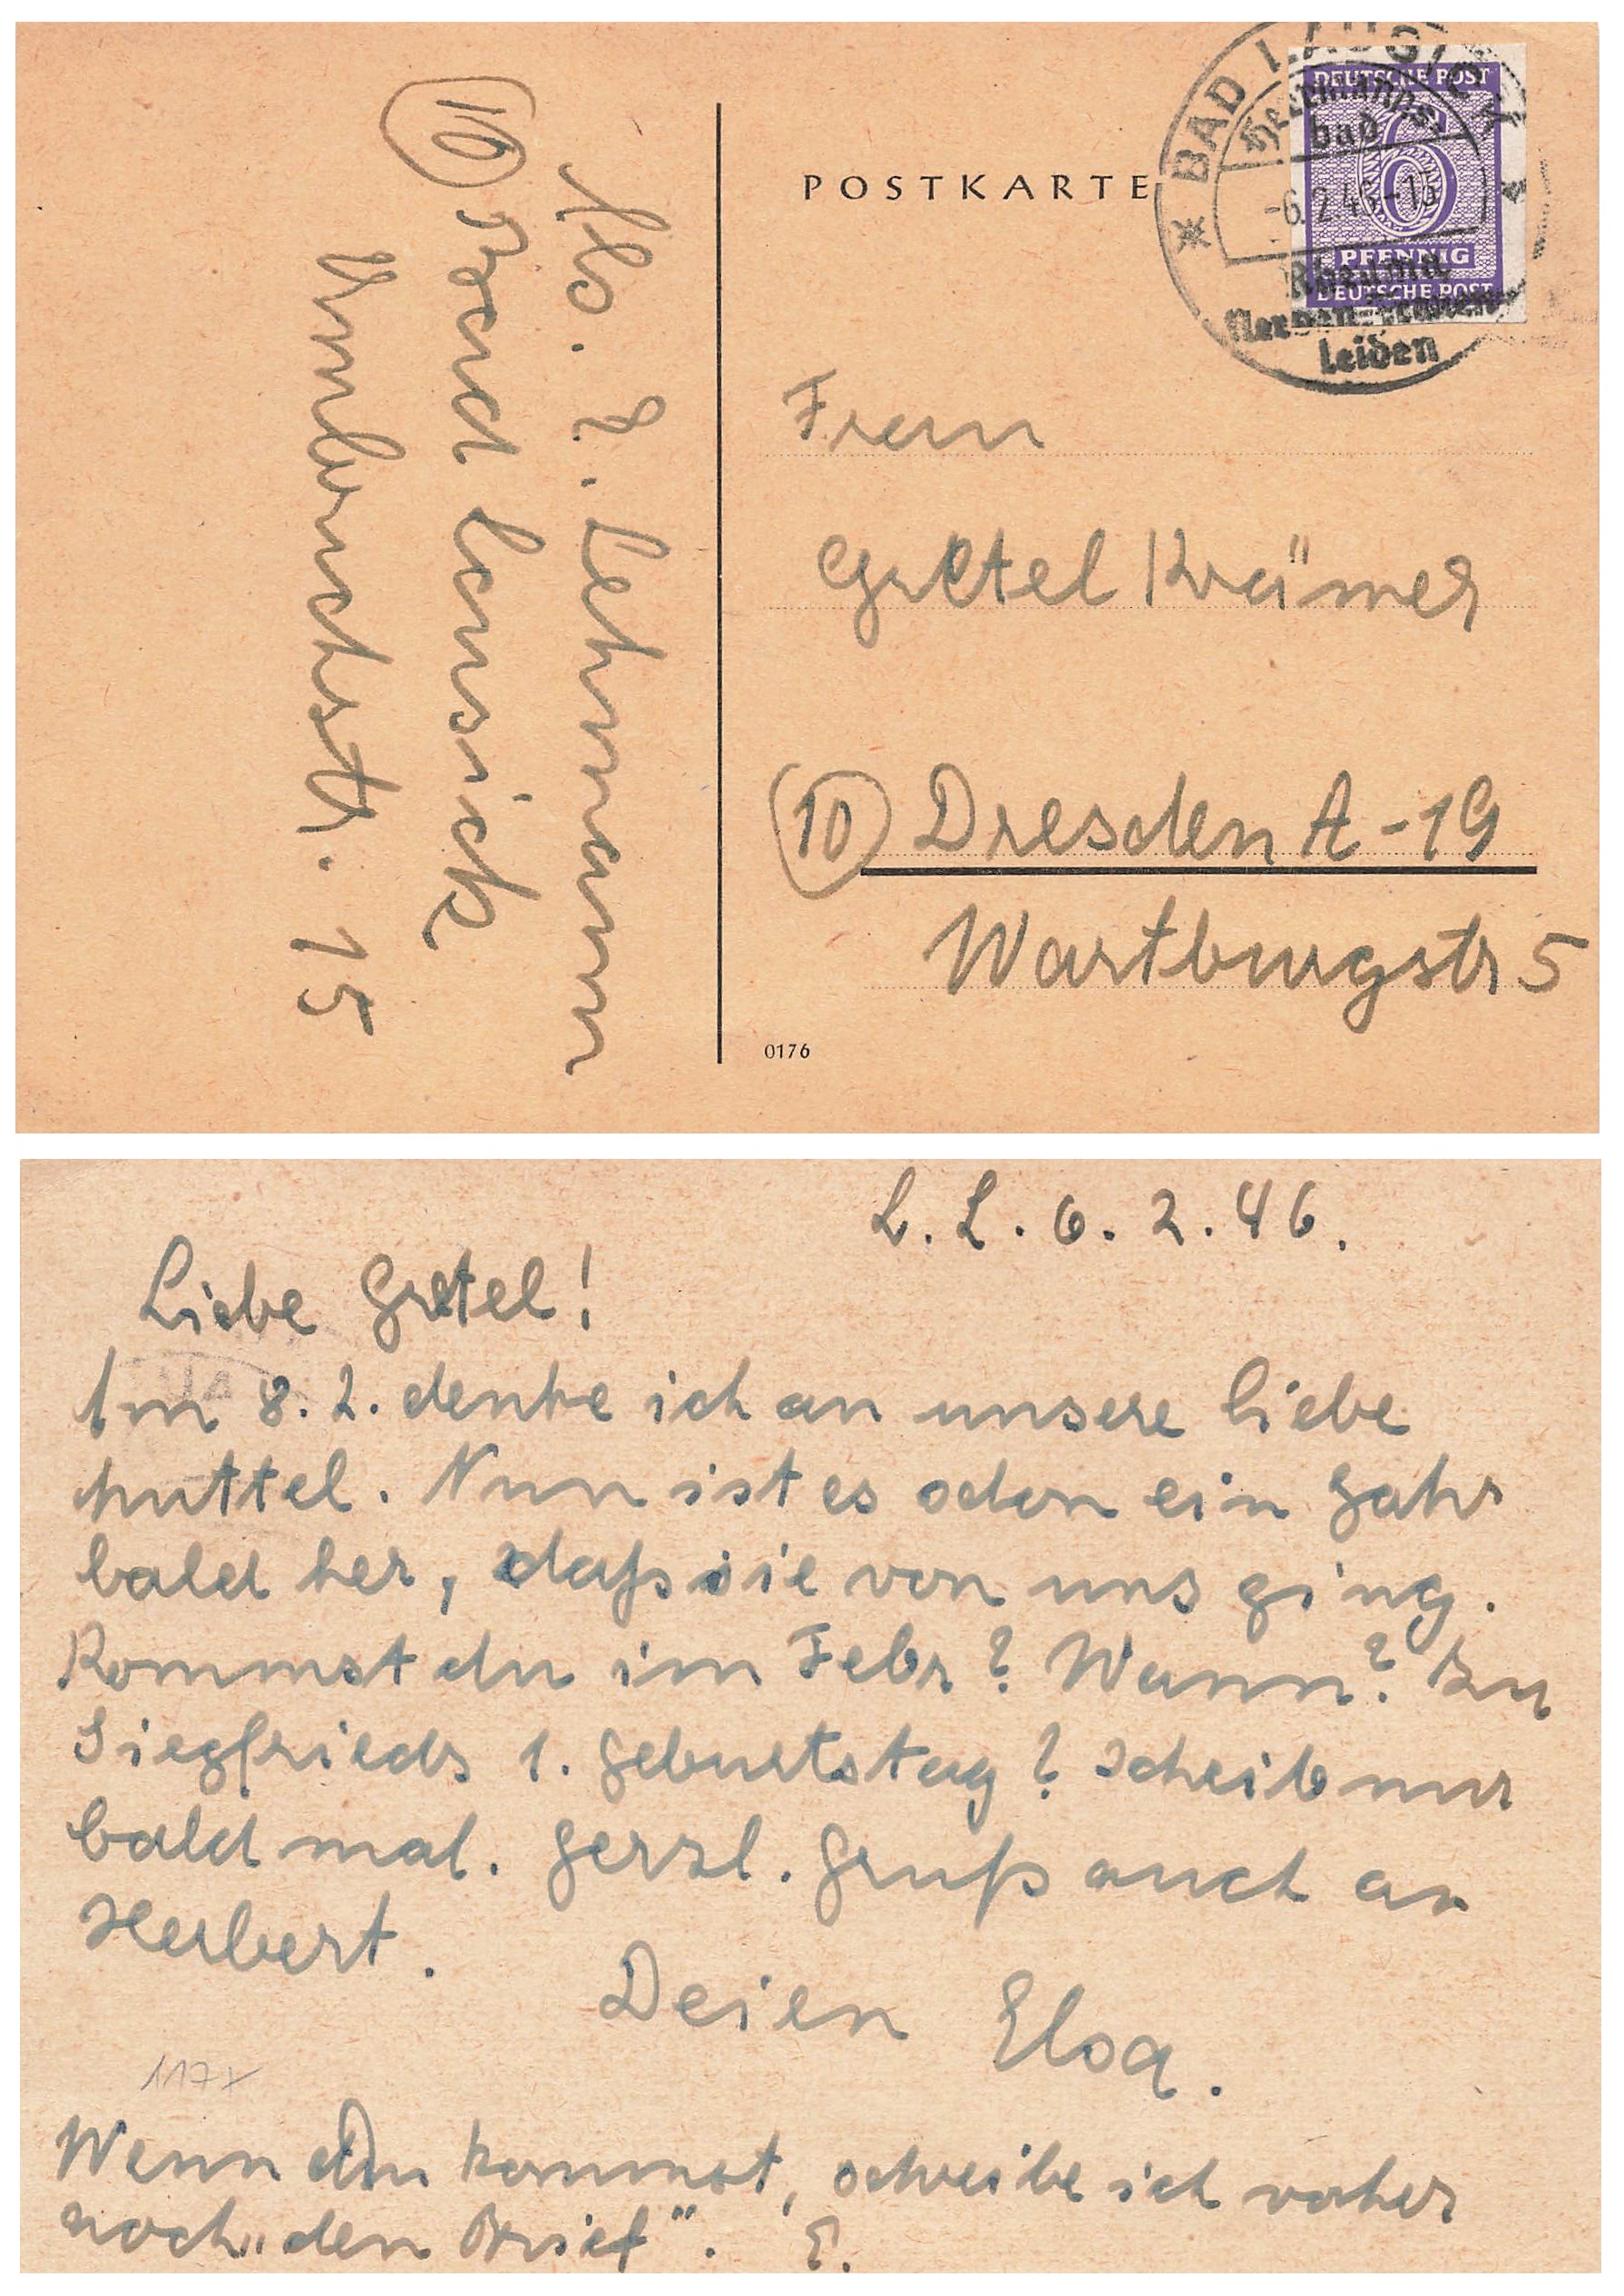 POSTKARTE
BAD LAUSICK
Herrmanns
bad
-6.2.46-15
Rheuma
Nerven-Frauen
leiden
DEUTSCHE POST
6
PFENNIG
DEUTSCHE POST
Abs. E. Lehmann
(10) Bad Lausick
15
Frau
Gretel Krämer
(10) Dresden A-19
Wartburgstr 5
0176
L. 6.2.46.
Liebe Gretel!
Am 8.2. denke ich an unsere liebe
Muttel. Nun ist es schon ein Jahr
bald her, daß sie von uns ging.
Kommst du im Febr? Wann? Zu
Siegfrieds 1. Geburtstag? Scheib nur
bald mal. Herzl. Gruß auch an
Herbert.
Deien Elsa.
117x
Wenn Du kommst, schreibe ich vorher
noch „den Brief". E.